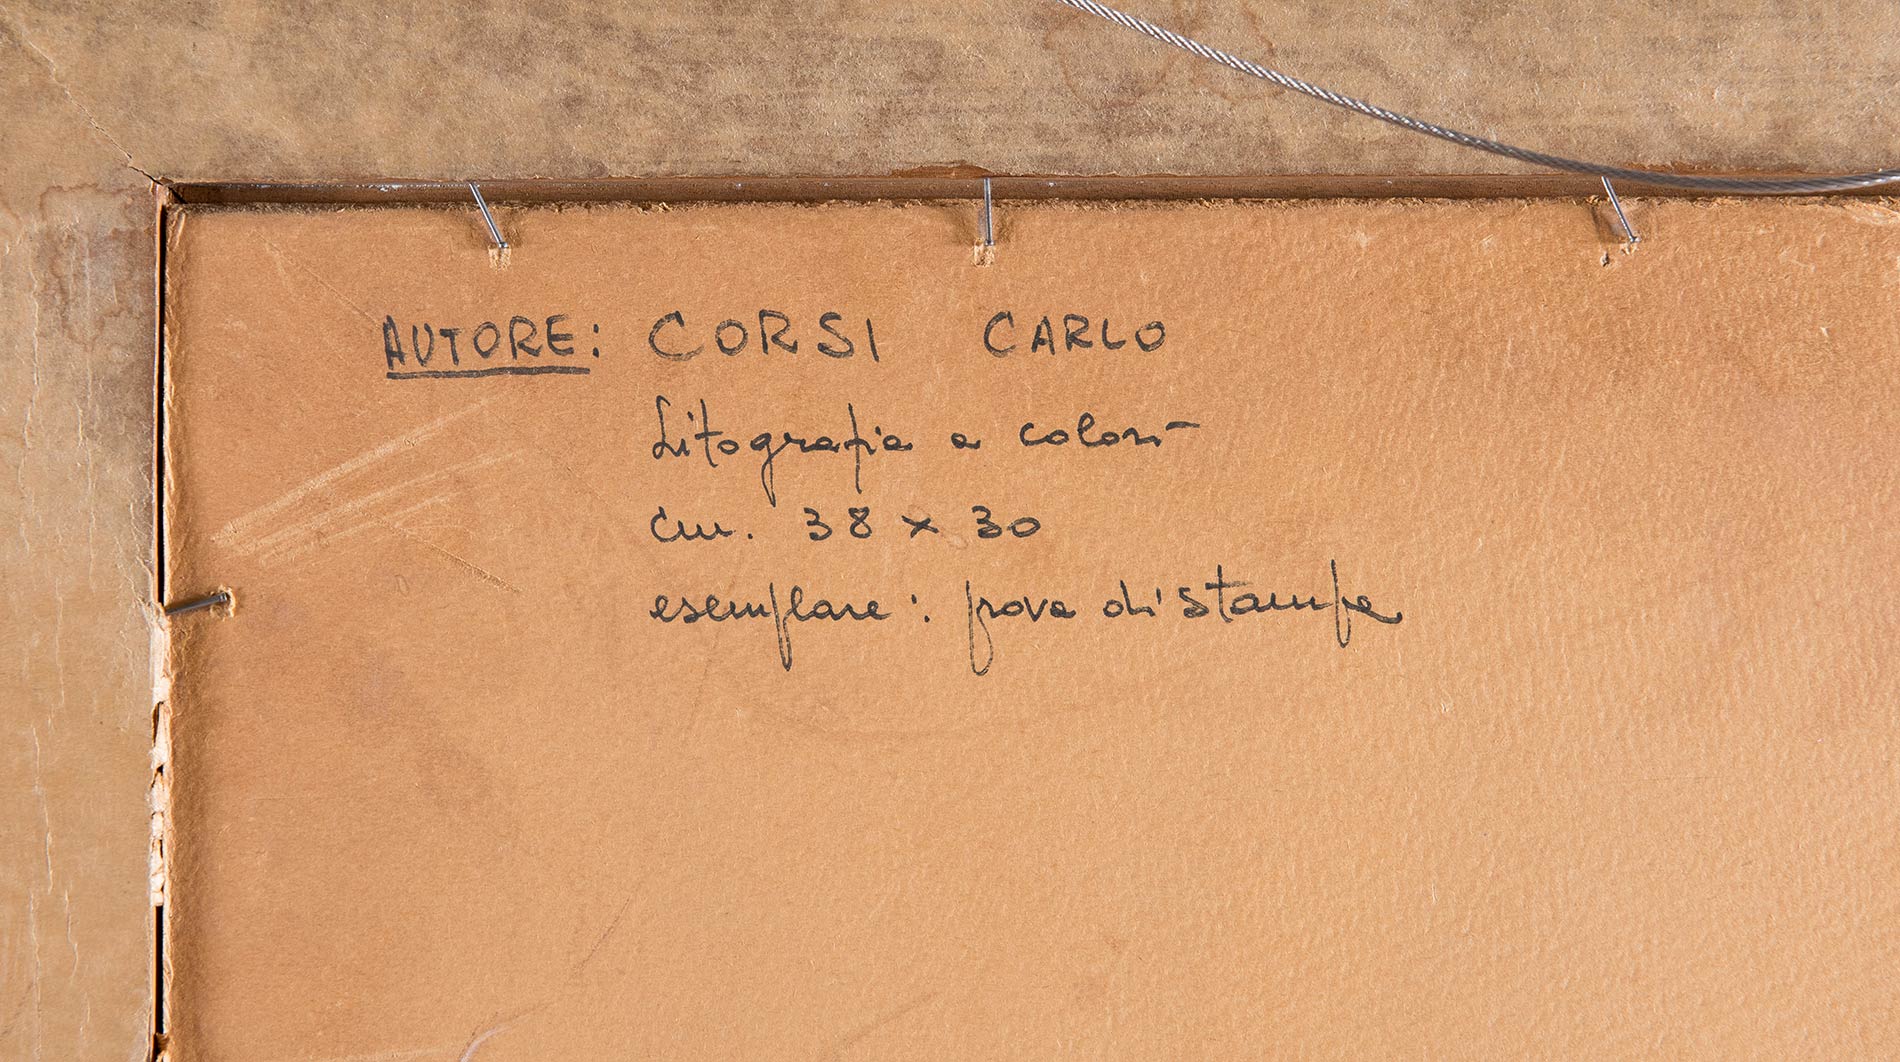 AUTORE: CORSI CARLO
Litografia a colori
cm. 38 x 30
esemplare: prova di stampa